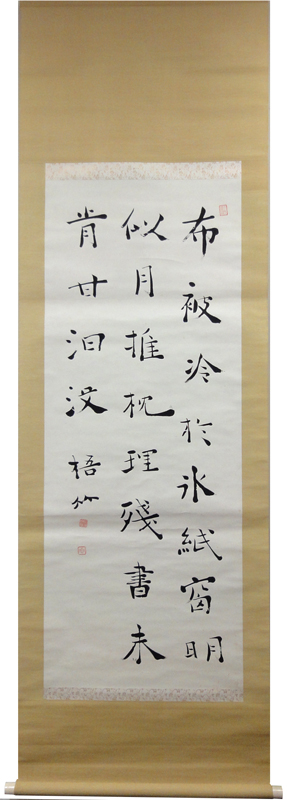 布被冷於氷紙窗明
似月推枕理殘書未
肯甘汩没 梧竹